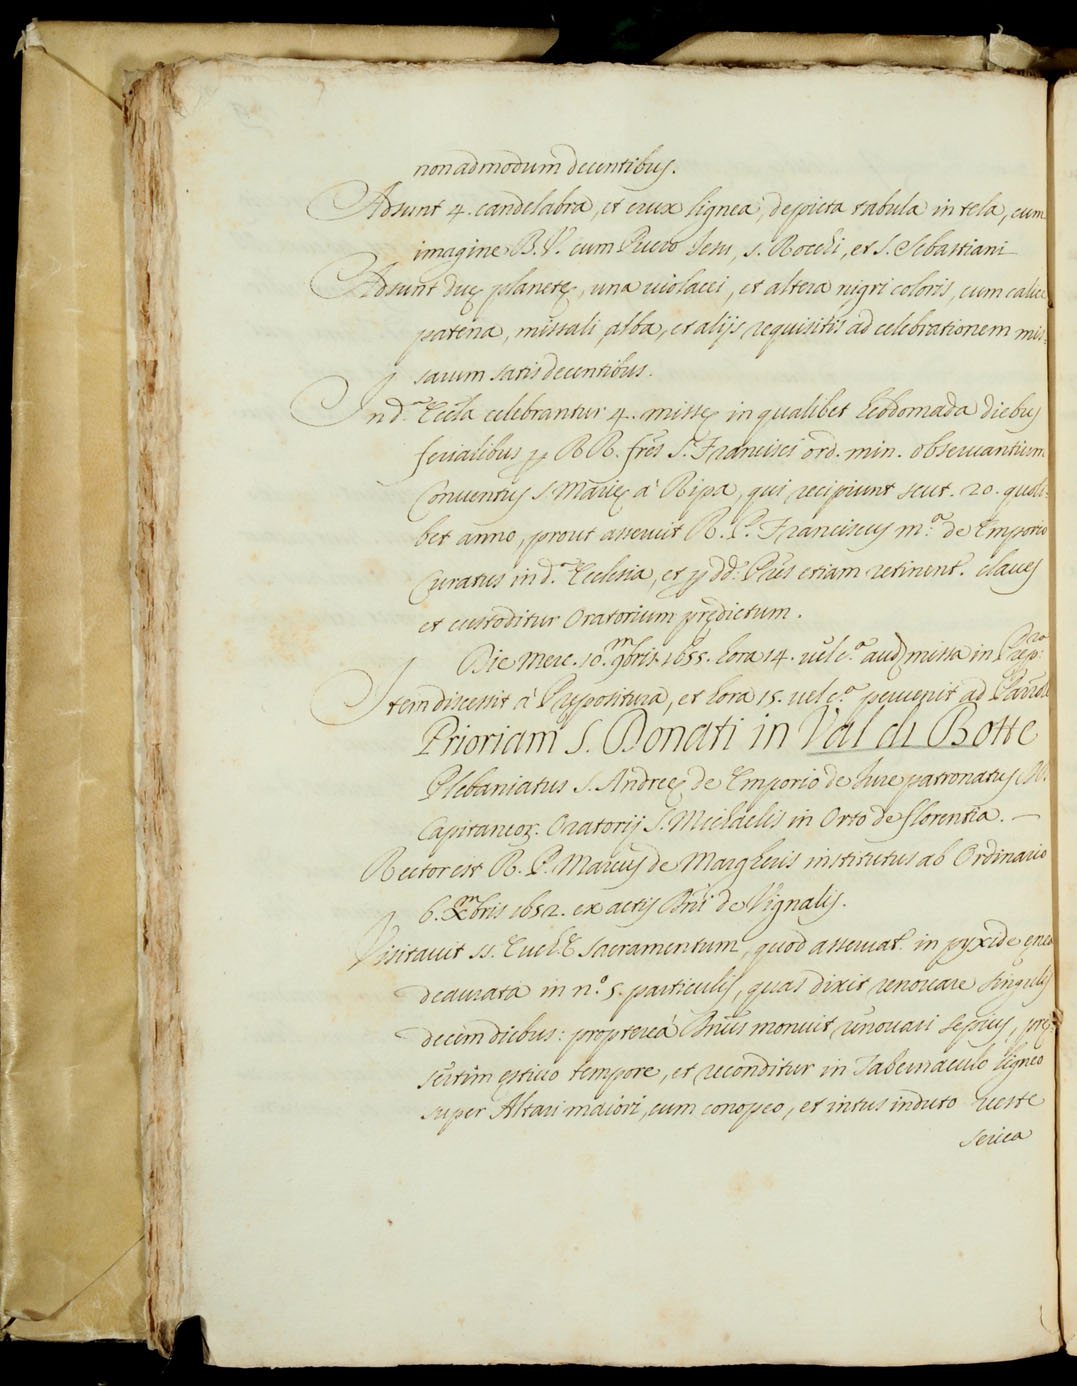 non admodum decentibus.
Adsunt 4. candelabra, et crux lignea, depicta tabula in tela, cum
imagine B. V. cum Puero Jesu, S. Rocchi, et S. Sebastiani
Adsunt duę planetę, una violacei, et altera nigri coloris, cum calice
patena, missali, alba, et alijs requisitis ad celebrationem mis=
sarum satis decentibus.
In d.ª Eccľa celebrantur 4. missę in qualibet hebdomada diebus
ferialibus p RR. fres S. Francisci ord. min. observantium
Conventus S. Marię à Ripa, qui recipiunt scut. 20. quoli=
bet anno, prout asseruit R. P. Franciscus m.ª de Emporio
Curatus in d.ª Ecclesia, et p dd. Pres etiam retinent. claves
et custoditur Oratorium prędictum.
Die Merc. 10. 9bris 1655. hora 14. vel c.ª audę missa in
Item discessit à Prępositura, et hora 15. vel c.ª pervenit ad Parrole
Prioriam S. Donati in Val di Botte
Plebaniatus S. Andreę de Emporio de Jure patronatus
Capitaneoꝝ. Oratorij S. Michaelis in Orto de florentia. —
Rector est R. P. Marcus de Margheris institutus ab Ordinario
6. Xbris 1652. ex actis Bnī de Vignalis.
Visitavit SS. Euch.ę Sacramentum, quod asservat. in pyxide ęnea
deaurata in n.º 5. particulis, quas dixit renovare singulis
decem diebus: propterea Bnūs monuit renovari sepius, prę=
sertim ęstivo tempore, et reconditur in Tabernaculo ligneo
super Altari maiori, cum conopeo, et intus induto veste
serica